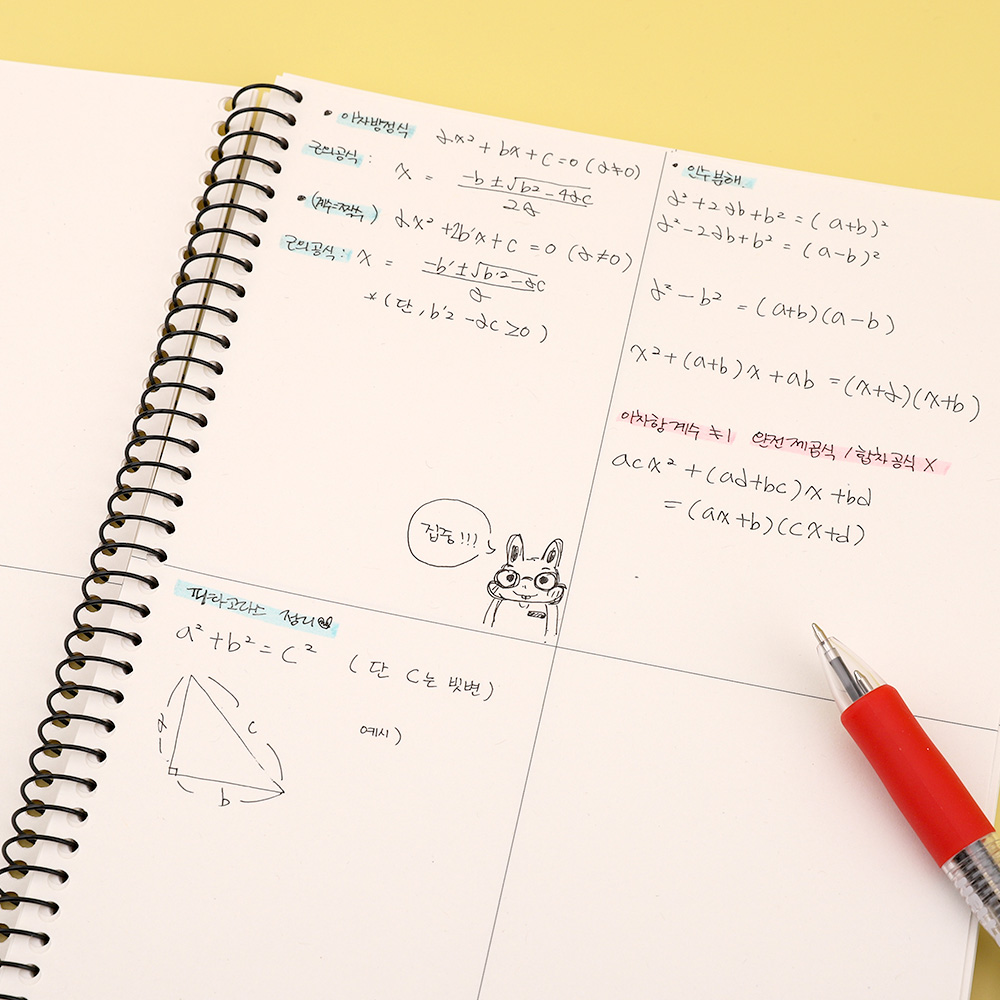 • 이차방정식 ax² + bx + c = 0 (a≠0)
근의공식 : x = (-b ± √(b² - 4ac)) / 2a
• (계수=짝수) ax² + 2b'x + c = 0 (a≠0)
근의공식 : x = (-b' ± √(b'² - ac)) / a
*(단, b'² - ac ≥ 0)
집중!!!
• 인수분해.
a² + 2ab + b² = (a+b)²
a² - 2ab + b² = (a-b)²
a² - b² = (a+b)(a-b)
x² + (a+b)x + ab = (x+a)(x+b)
이차항계수 ≠ 1 완전제곱식 / 합차공식 X
acx² + (ad+bc)x + bd
= (ax+b)(cx+d)
피타고라스 정리
a² + b² = c² (단 c는 빗변)
a
c
b
예시)